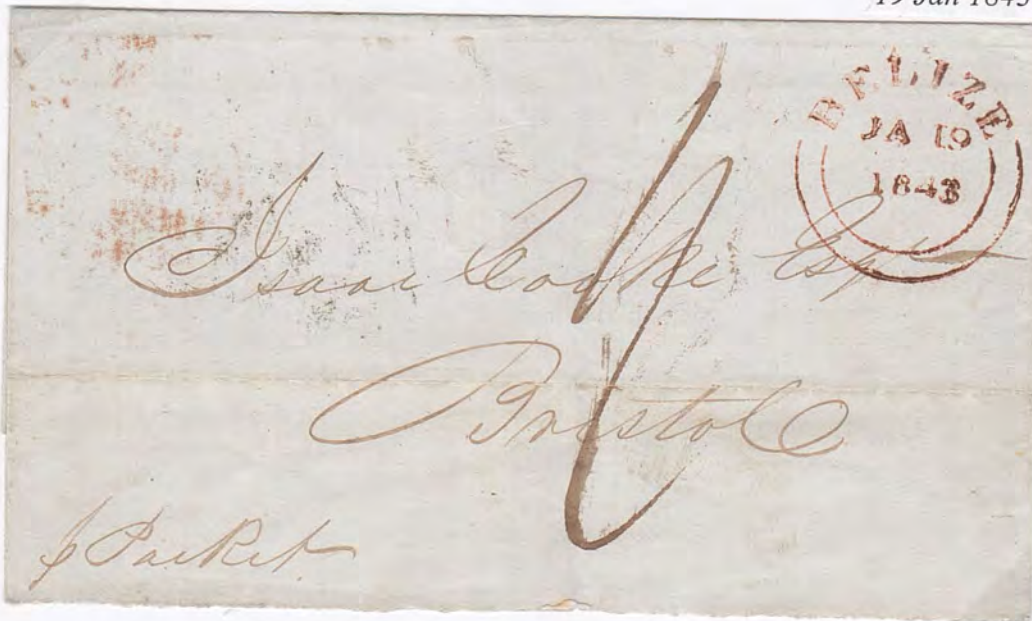 19 Jan 1843
BELIZE
JA 19
1843
Isaac Cooke Esqr
Bristol
p Packet